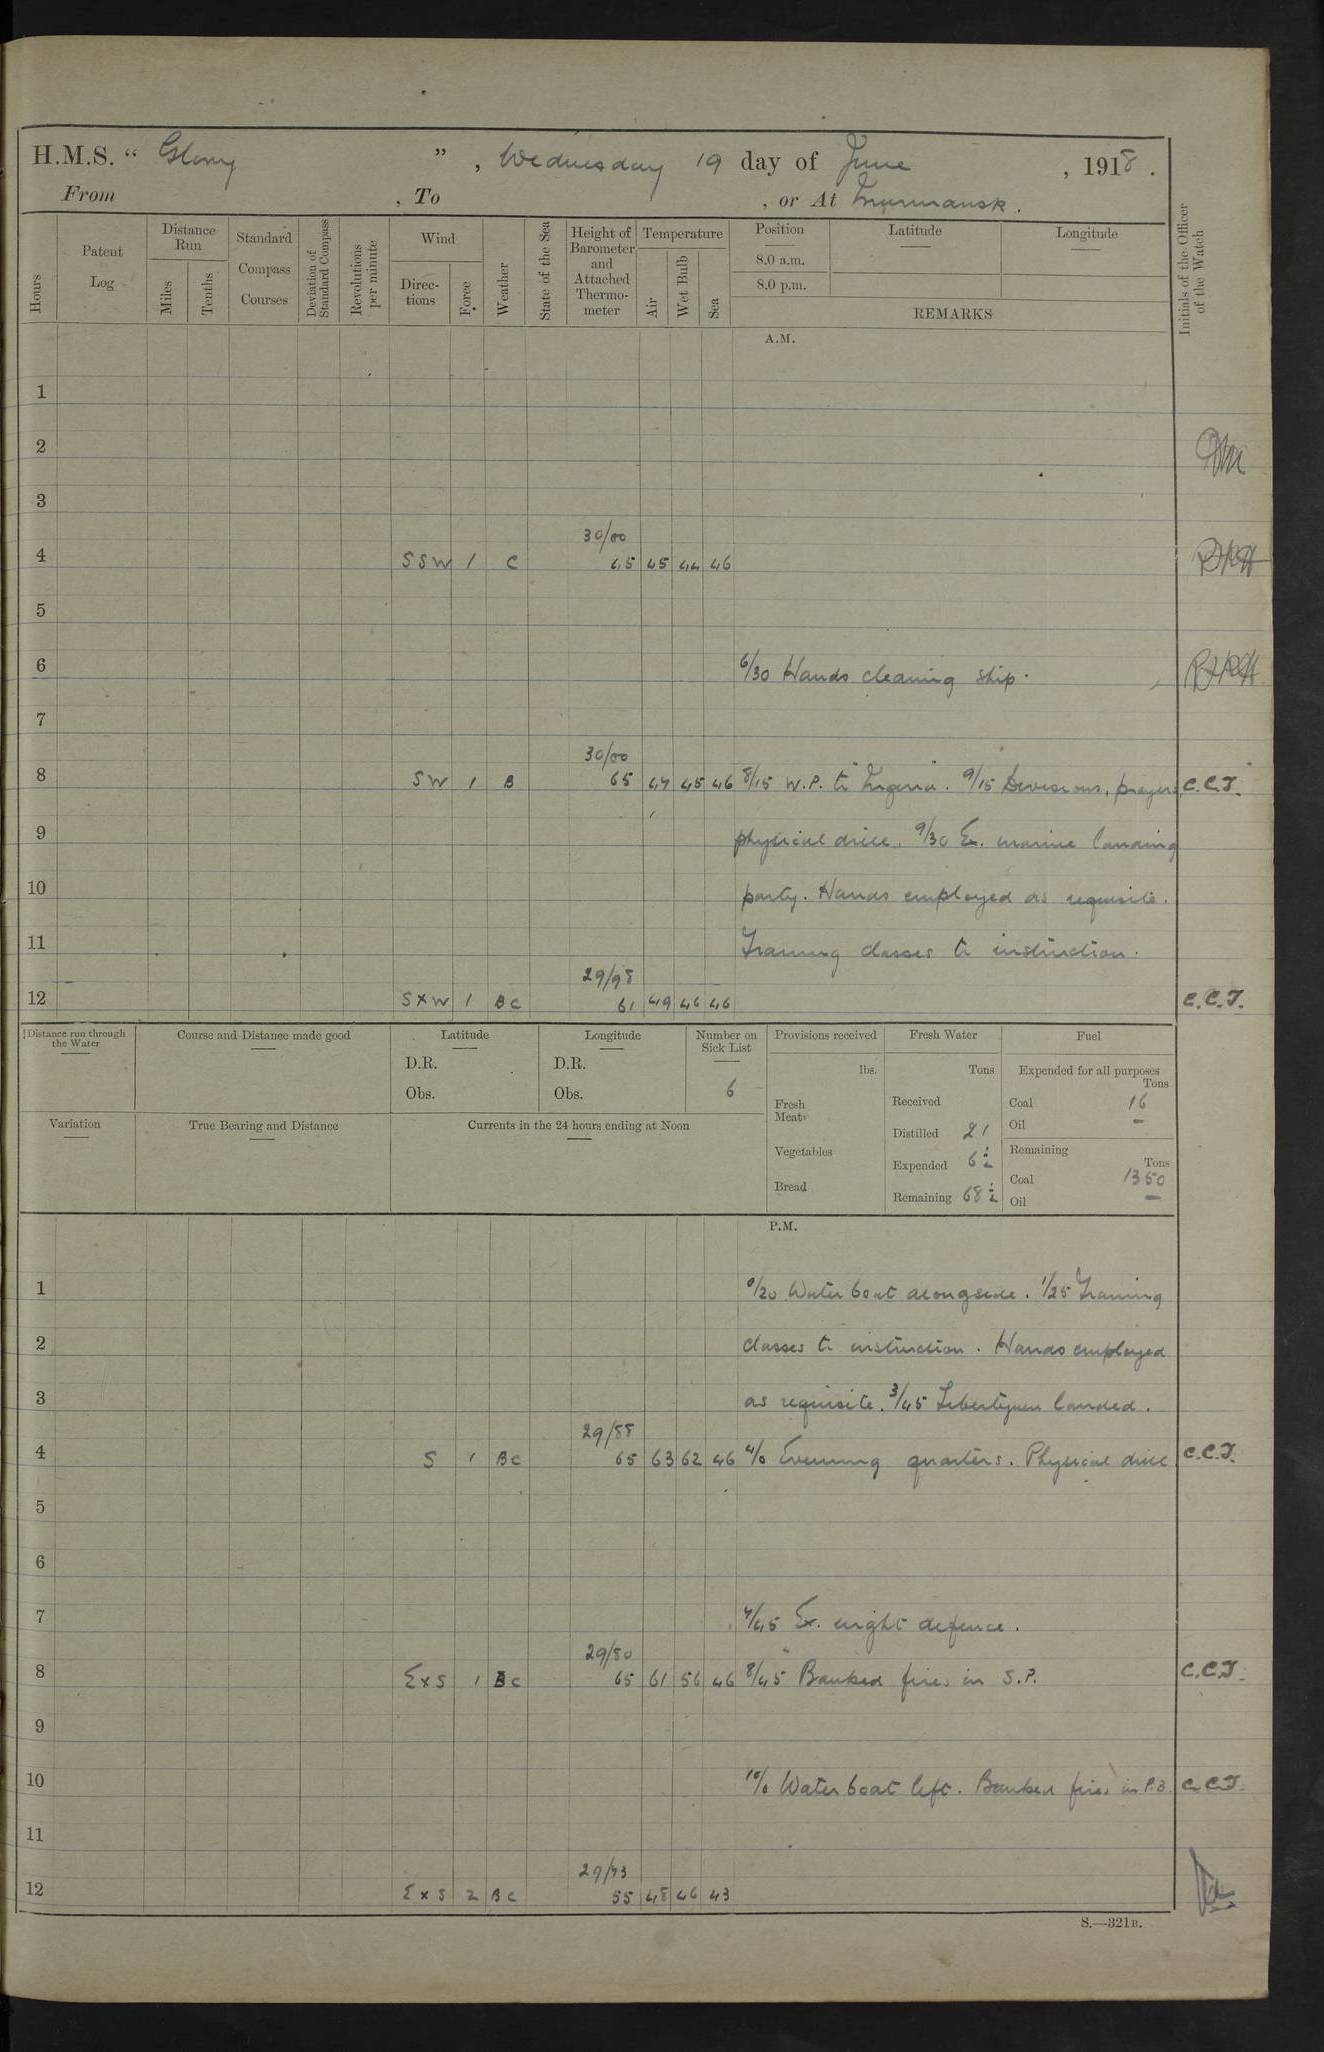 H.M.S. “ Glory ” , Wednesday 19 day of June , 1918 .
From , To , or At Murmansk .
Hours Patent Log Distance Run Miles Tenths Standard Compass Courses Deviation of Standard Compass Revolutions per minute Wind Directions Force Weather State of the Sea Height of Barometer and Attached Thermometer Temperature Air Wet Bulb Sea Position 8.0 a.m. 8.0 p.m. Latitude Longitude REMARKS Initials of the Officer of the Watch
A.M.
1
2
3
30/00
4 SSW 1 C 65 45 44 46
5
6 6/30 Hands cleaning ship.
7
30/00
8 SW 1 B 65 47 45 46 8/15 W.P. to "Nigeria". 9/15 Divisions, prayers, C.C.T.
9 physical drill. 9/30 Ex. marine landing
10 party. Hands employed as requisite.
11 Training classes to instruction.
29/98
12 SxW 1 BC 61 49 46 46 C.C.T.
Distance run through the Water Course and Distance made good Latitude Longitude Number on Sick List Provisions received Fresh Water Fuel
D.R. D.R. lbs. Tons Expended for all purposes Tons
Obs. Obs. 6 Fresh Meat Received Coal 16
Variation True Bearing and Distance Currents in the 24 hours ending at Noon Distilled 21 Oil –
Vegetables Expended 6½ Remaining Tons
Bread Coal 1350
Remaining 68½ Oil –
P.M.
1 0/20 Water boat alongside. 1/25 Training
2 classes to instruction. Hands employed
3 as requisite. 3/45 Libertymen landed.
29/88
4 S 1 BC 65 63 62 46 4/0 Evening quarters. Physical drill C.C.T.
5
6
7 7/45 Ex. night defence.
29/80
8 ExS 1 BC 65 61 56 46 8/45 Banked fires in S.P. C.C.T.
9
10 10/0 Water boat left. Banked fires in P.B. C.C.T.
11
29/73
12 ExS 2 BC 55 48 46 43
S.—321B.